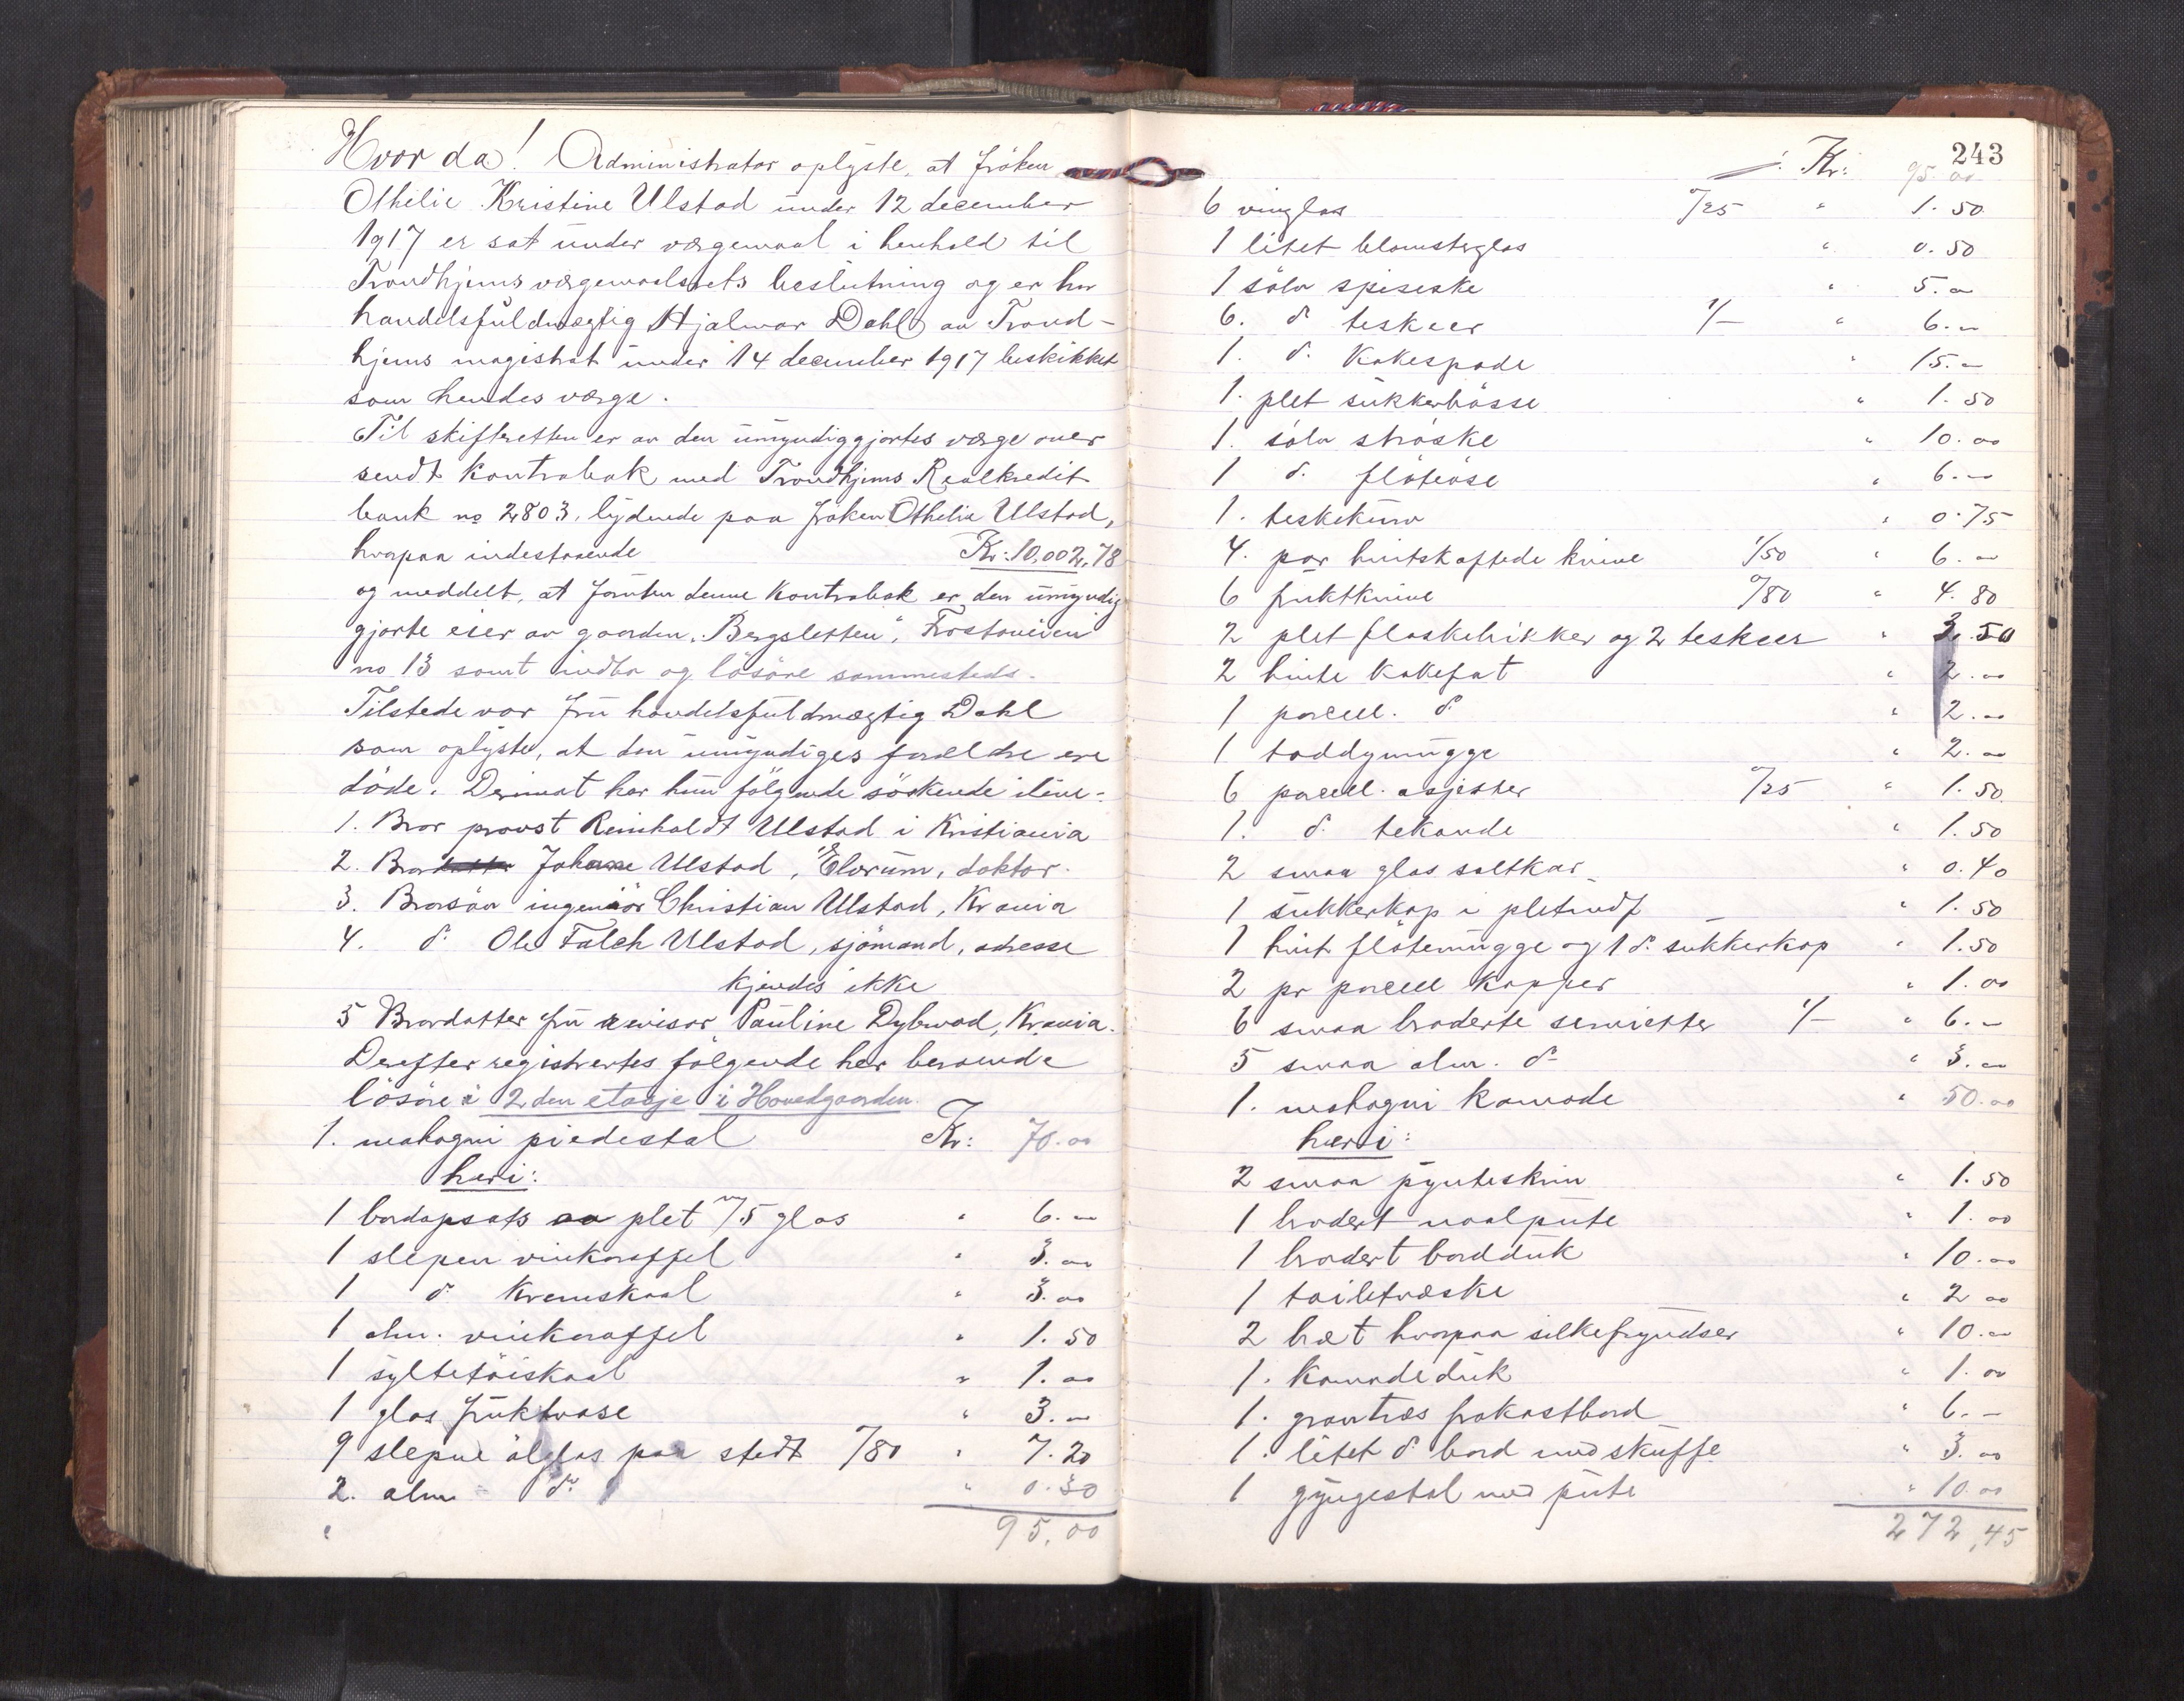 Hvor da! Administrator oplyste, at frøken
Othilie Kristine Ulstad under 12 december
1917 er sat under værgemaal i henhold til
Trondhjems værgemaalsrets beslutning og er hr
handelsfuldmægtig Hjalmar Dahl av Trond-
hjems magistrat under 14 december 1917 beskikket
som hendes værge.
Til skifteretten er av den umyndiggjortes værge over
sendt Kontrabok med Trondhjems Realkredit
bank no 2803, lydende paa frøken Othelie Ulstad,
hvorpaa indestaaende Kr: 10,002,78
og meddelt, at foruten denne Kontrabok er den umyndig
gjorte eier av gaarden "Bergsletten", Frostaveien
no 13 samt indbo og løsøre sammesteds.
Tilstede var fru handelsfuldmægtig Dahl
som oplyste, at den umyndiges forældre ere
døde. Derimot har hun følgende søskende ilive:
1. Bror provst Reinholdt Ulstad i Kristiania
2. Bror Johan Ulstad, Elverum, doktor.
3. Brorsøn ingeniør Christian Ulstad, Kr ania
4. d. Ole Falch Ulstad, sjømand, adresse
kjendes ikke
5 Brordatter fru revisor Pauline Dybwad, Kr.ania.
Derefter registrertes følgende her beroende
løsøre i 2den etasje i Hovedgaarden.
1. mahogni piedestal Kr: 70.00
heri:
1 bordopsats av plet m/5 glas " 6.00
1 slepen vinkaraffel " 3.00
1 d. Kremskaal " 3.00
1 alm. vinkaraffel " 1.50
1 syltetøiskaal " 1.00
1 glas fruktvase " 3.00
9 slepne ølglas paa stedt /80 " 7.20
2. alm d. " 0.30
95,00
243
Kr: 95.00
6 vinglas "/25 " 1.50
1 litet blomsterglas " 0.50
1 sølv spiseske " 5.00
6. d. teskeer 1/- " 6.00
1. d. Kakespade " 15.00
1. plet sukkerbøsse " 1.50
1. sølv strøske " 10.00
1 d. fløteøse " 6.00
1. teskekurv " 0.75
4. par hvitskaftede knive 1/50 " 6.00
6 fruktknive "/80 " 4.80
2 plet flaskebrikker og 2 teskeer " 3.50
2 hvite Kakefat " 2.00
1 porcell. d. " 2.00
1 toddymugge " 2.00
6 porcell. asjetter "/25 " 1.50
1. d. tekande " 1.50
2 smaa glas saltkar " 0.40
1 sukkerkop i pletindf " 1.50
1 hvit fløtemugge og 1 d. sukkerkop " 1.50
2 pr porcell kopper " 1.00
6 smaa broderte servietter 1/- " 6.00
5 smaa alm. d. " 3.00
1. mahogni komode " 50.00
heri:
2 smaa pynteskrin " 1.50
1 brodert naalpute " 1.00
1 brodert bordduk " 10.00
1 toiletvæske " 2 00
2 bræt hvorpaa silkefryndser " 10.00
1. Komodeduk " 1.00
1. grantræs frokostbord " 6.-
1. litet d. bord med skuffe " 3.00
1 gyngestol med pute " 10.00
272,45